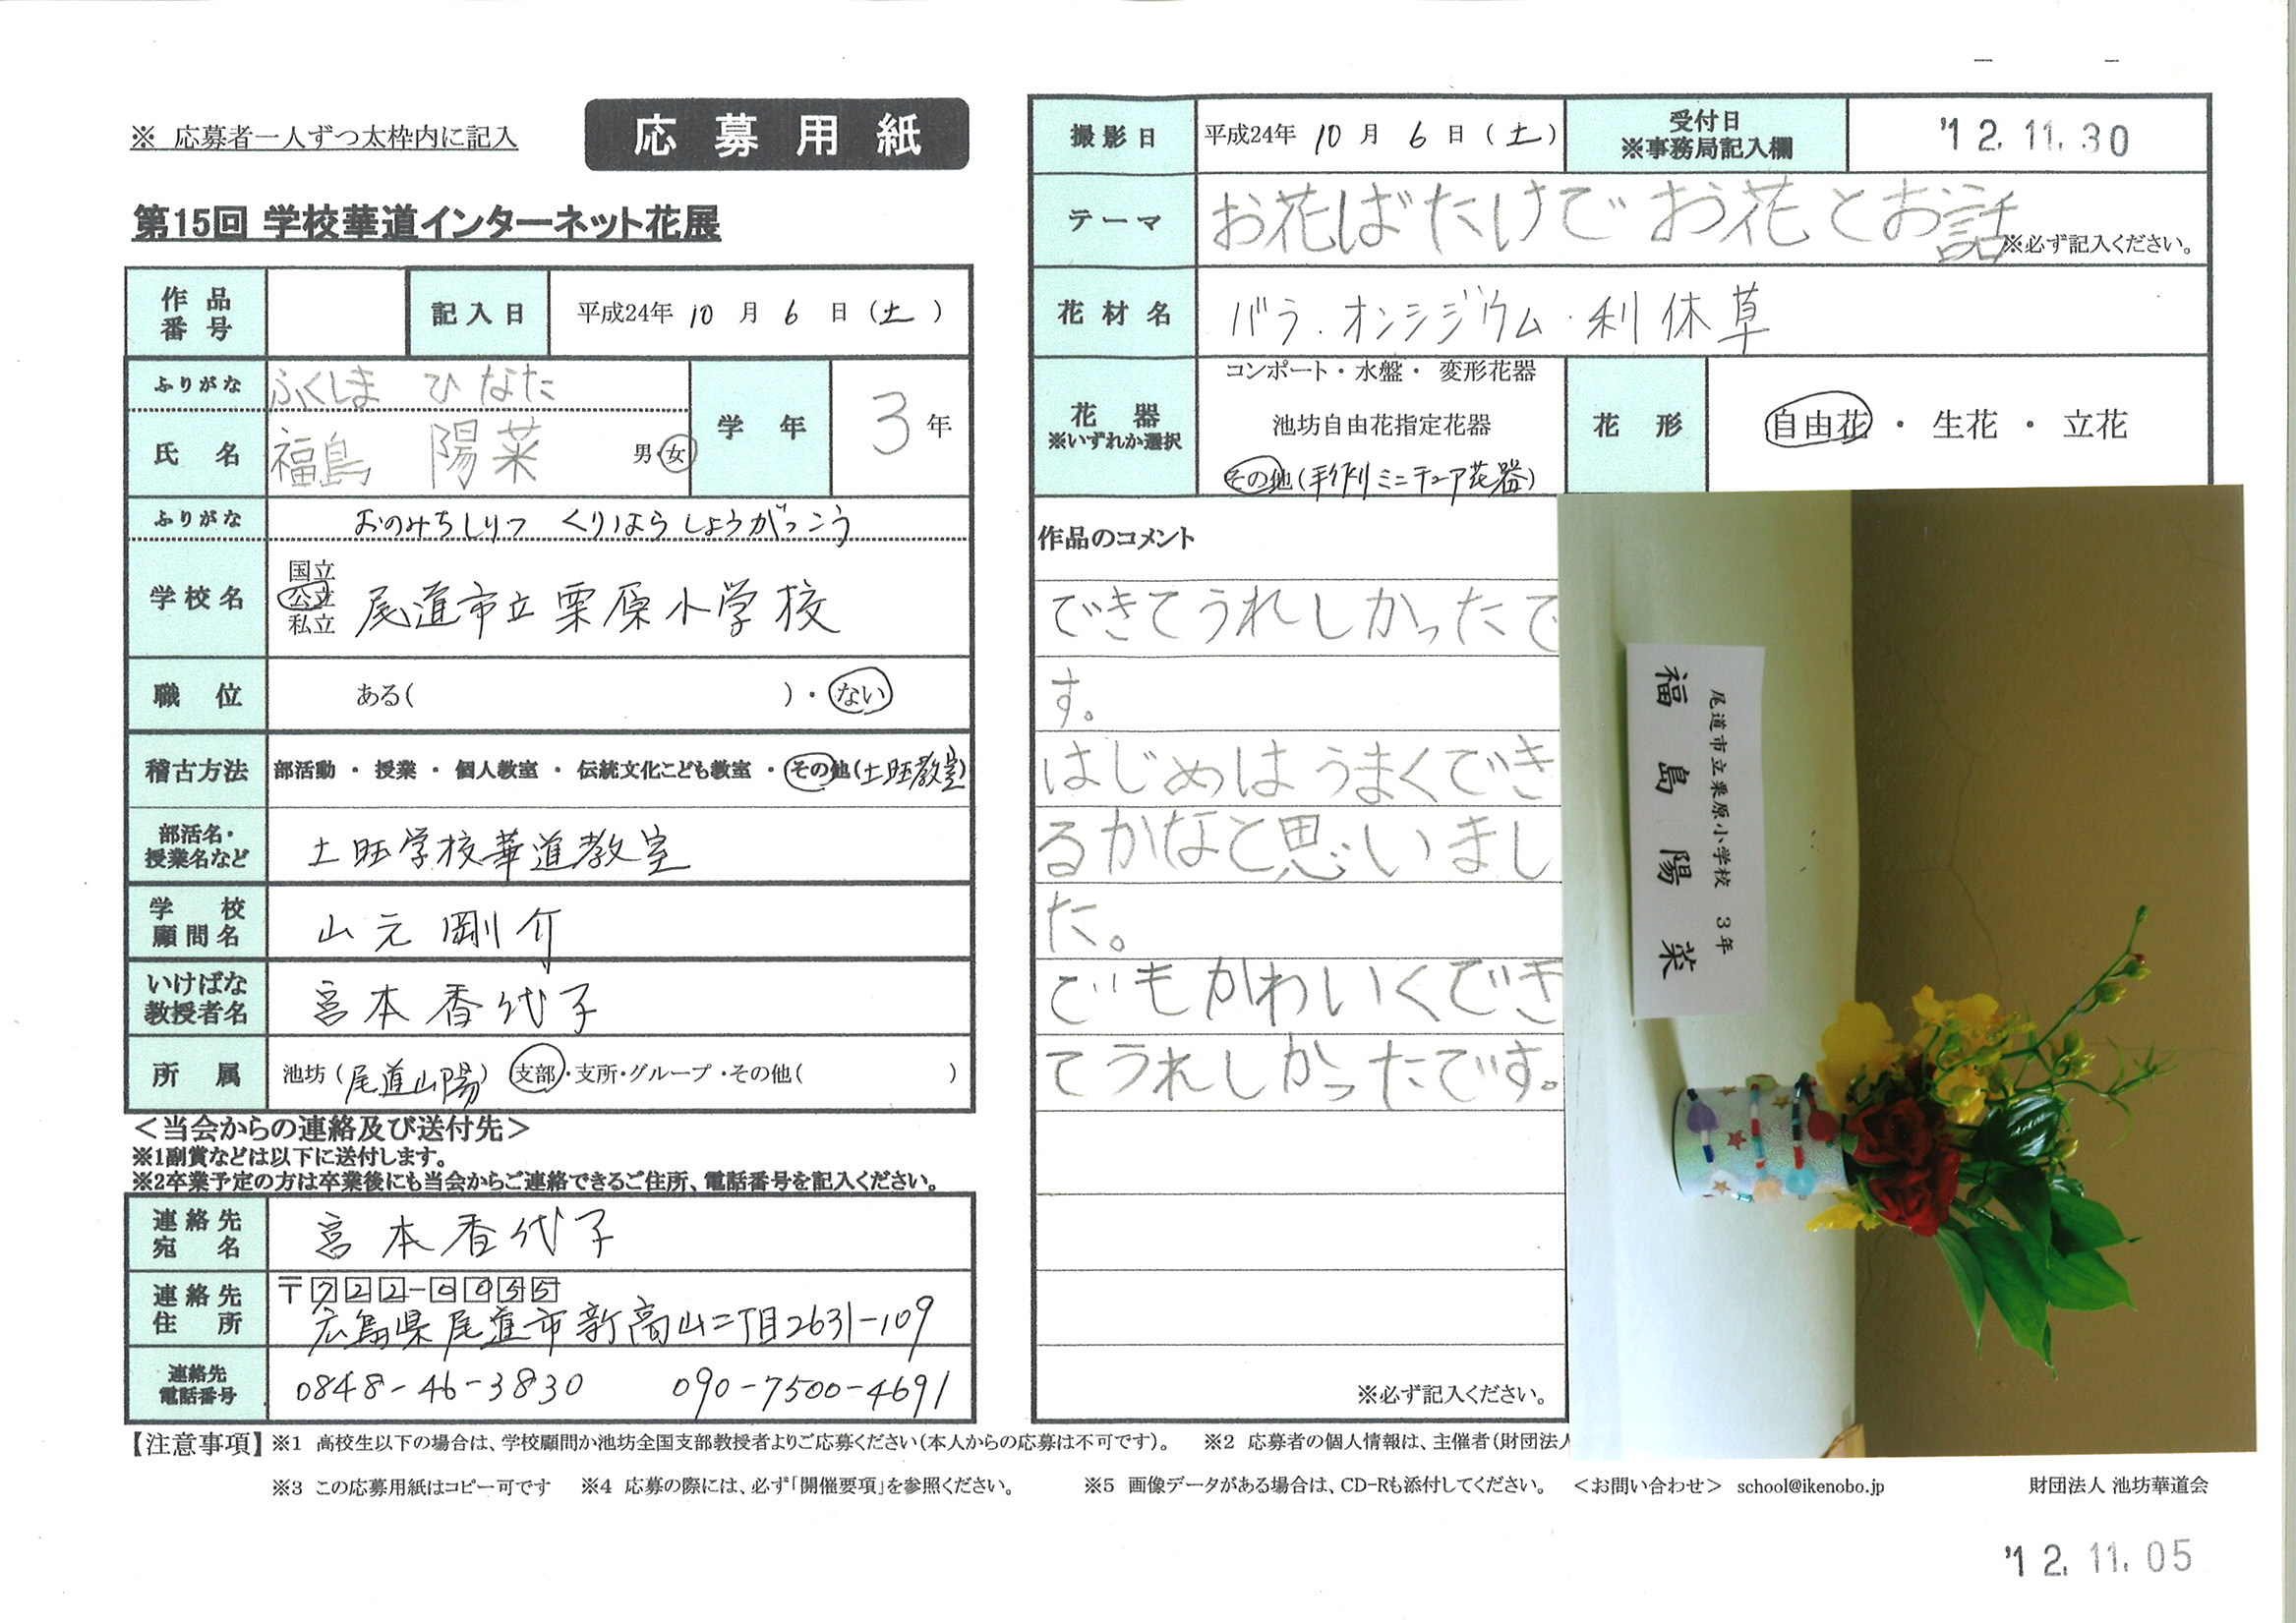 ※ 応募者一人ずつ太枠内に記入
応募用紙
第15回 学校華道インターネット花展
作品番号
記入日 平成24年 10月 6日(土)
ふりがな ふくしま ひなた
氏名 福島 陽菜 男・女
学年 3年
ふりがな おのみちしりつ くりはらしょうがっこう
学校名 国立 公立 私立 尾道市立栗原小学校
職位 ある( )・ない
稽古方法 部活動 ・ 授業 ・ 個人教室 ・ 伝統文化こども教室 ・ その他(土旺教室)
部活名・授業名など 土旺学校華道教室
学校顧問名 山元 剛介
いけばな教授者名 宮本香代子
所属 池坊(尾道山陽) 支部・支所・グループ・その他( )
＜当会からの連絡及び送付先＞
※1副賞などは以下に送付します。
※2卒業予定の方は卒業後にも当会からご連絡できるご住所、電話番号を記入ください。
連絡先宛名 宮本香代子
連絡先住所 〒722-0055
広島県尾道市新高山二丁目2631-109
連絡先電話番号 0848-46-3830 090-7500-4691
撮影日 平成24年 10月 6日(土)
受付日 ※事務局記入欄 '12.11.30
テーマ お花ばたけでお花とお話 ※必ず記入ください。
花材名 バラ・オンシジウム・利休草
花器 ※いずれか選択 コンポート・水盤・ 変形花器
池坊自由花指定花器
その他(手作りミニチュア花器)
花形 自由花 ・ 生花 ・ 立花
作品のコメント
できてうれしかったで
す。
はじめはうまくでき
るかなと思いまし
た。
でもかわいくでき
てうれしかったです。
※必ず記入ください。
尾道市立栗原小学校 3年
福島陽菜
【注意事項】※1 高校生以下の場合は、学校顧問か池坊全国支部教授者よりご応募ください(本人からの応募は不可です)。 ※2 応募者の個人情報は、主催者(財団法人
※3 この応募用紙はコピー可です ※4 応募の際には、必ず「開催要項」を参照ください。 ※5 画像データがある場合は、CD-Rも添付してください。 ＜お問い合わせ＞ school@ikenobo.jp 財団法人 池坊華道会
'12.11.05